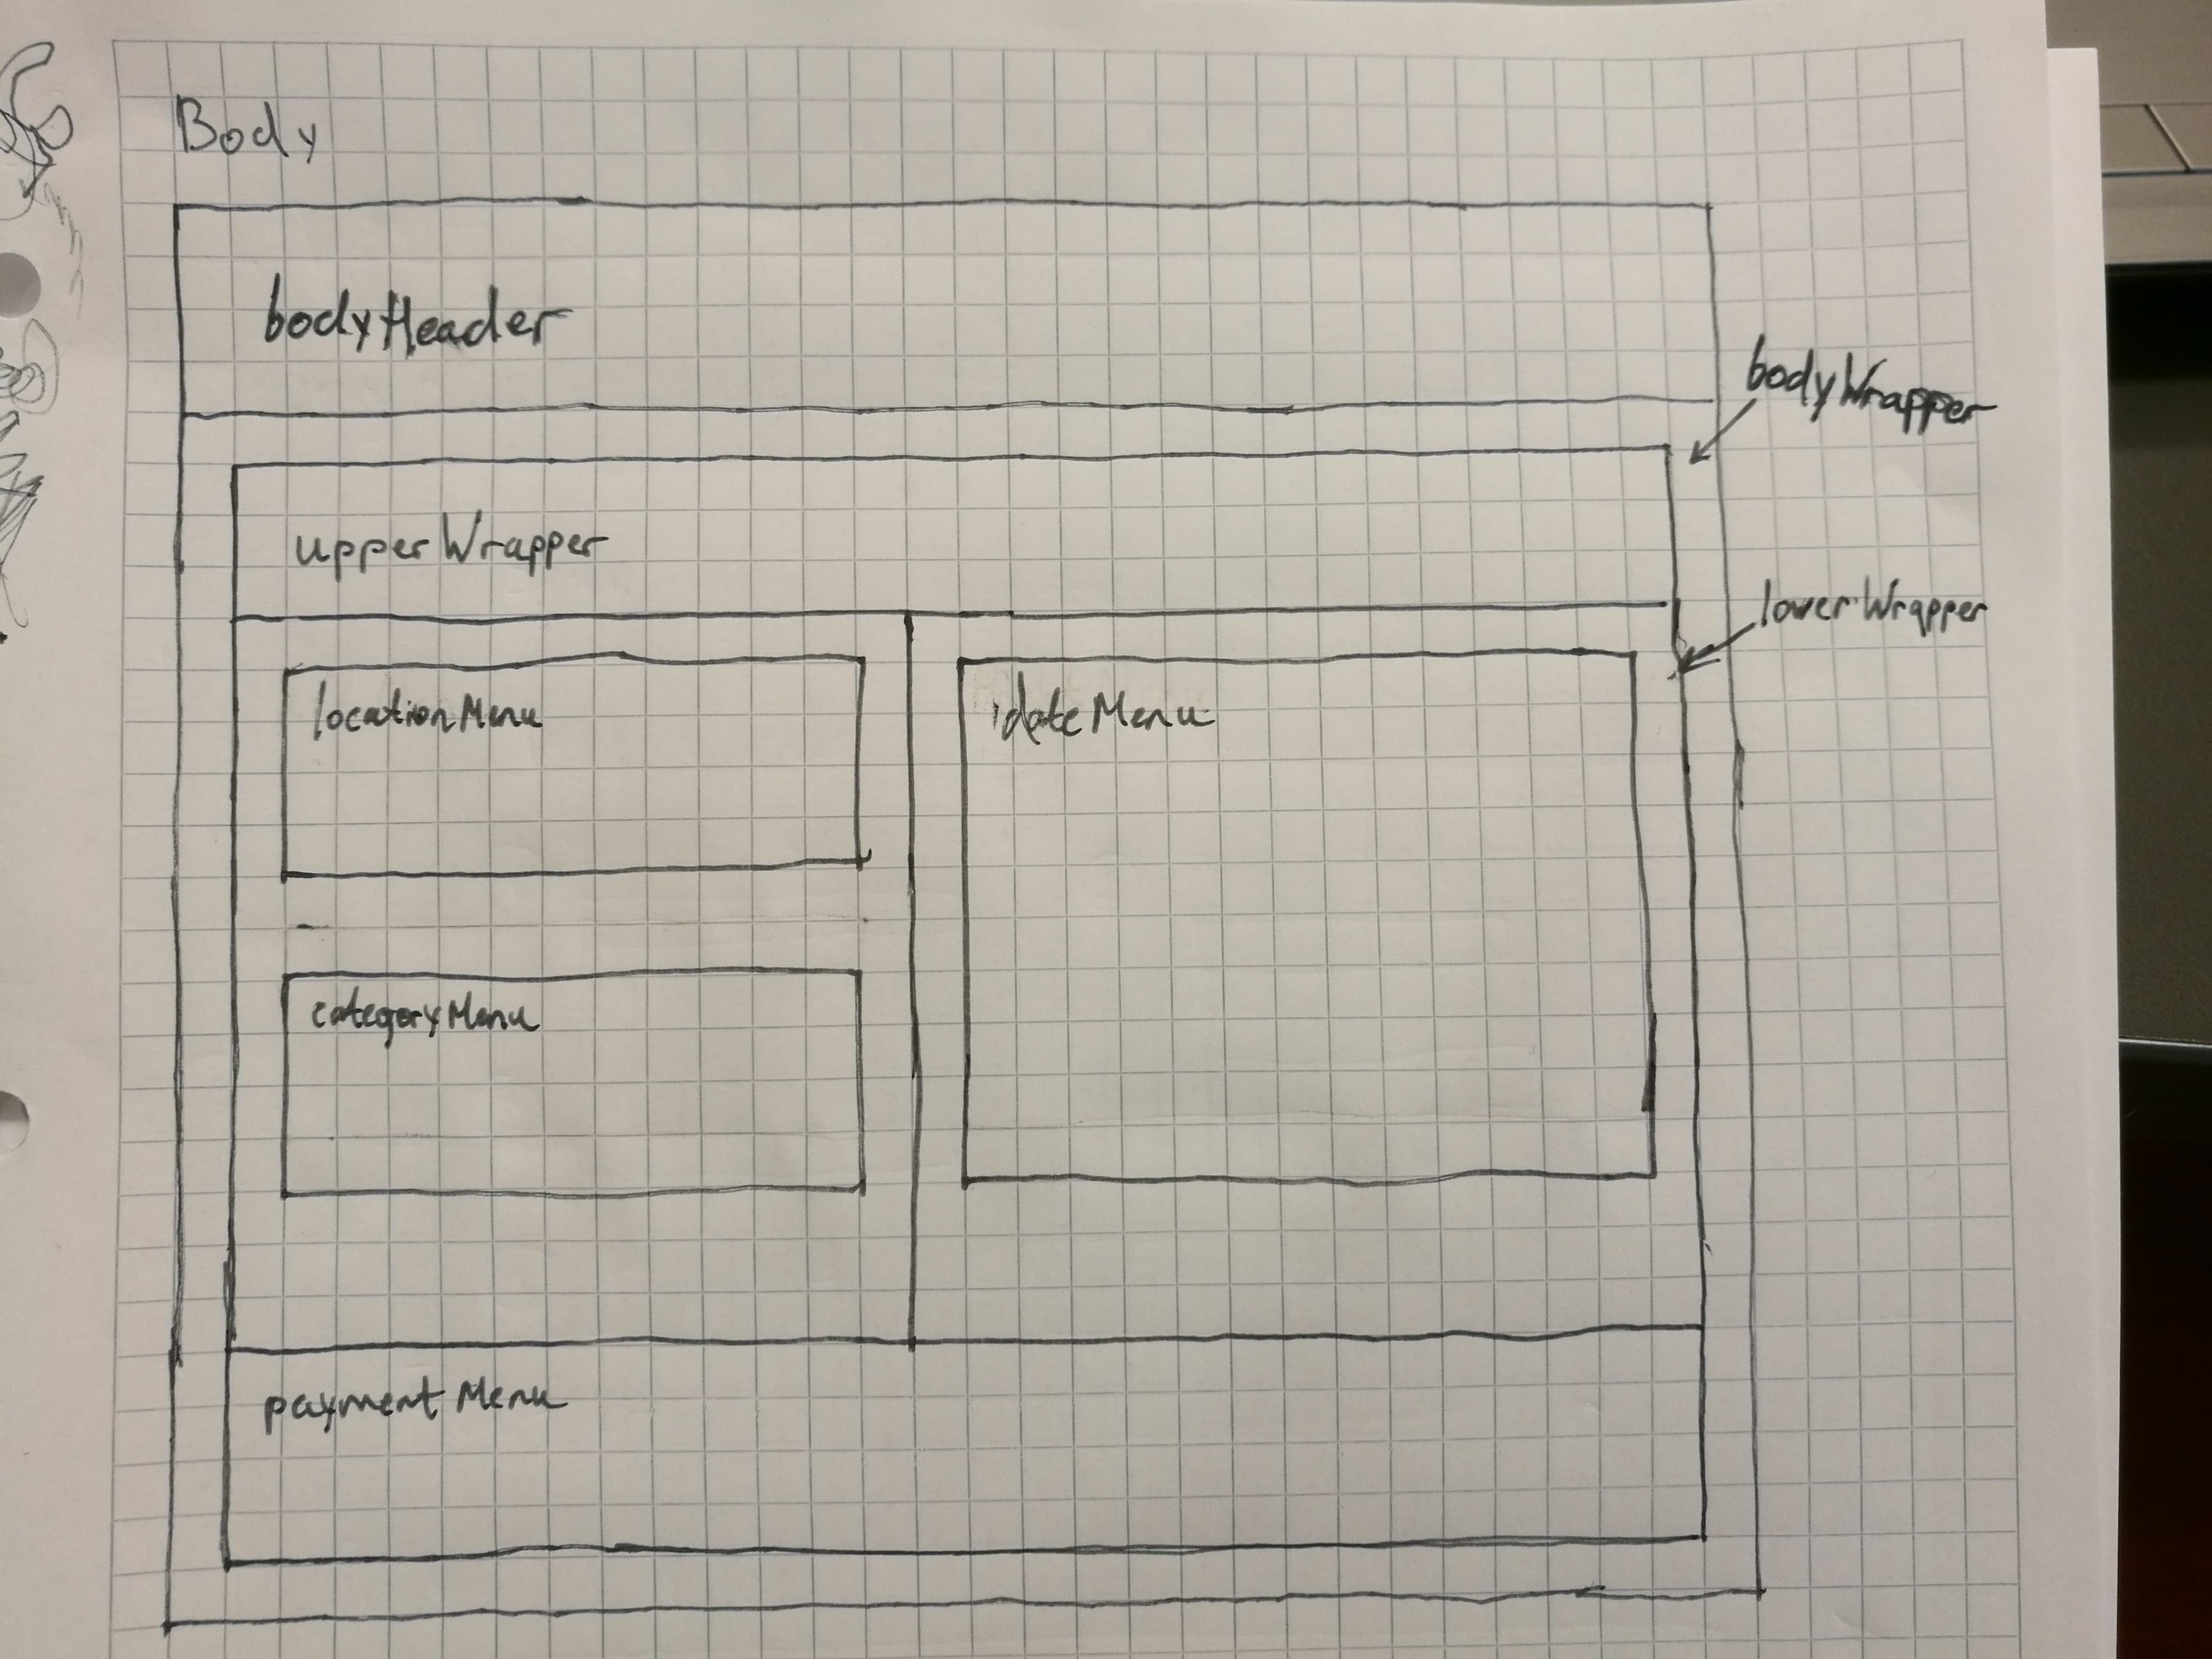 Body
bodyHeader
bodyWrapper
upperWrapper
lowerWrapper
locationMenu
dateMenu
categoryMenu
paymentMenu